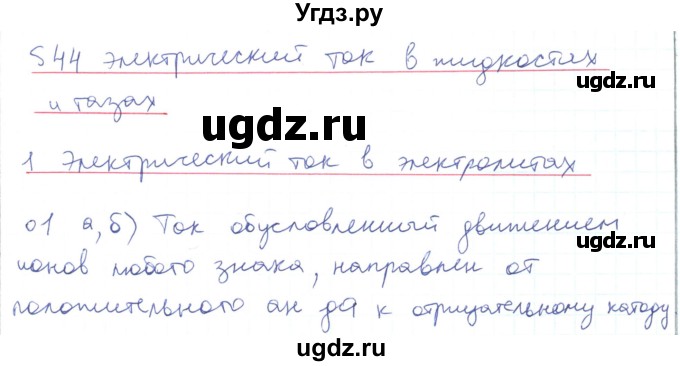 Угдз.ру
§44 Электрический ток в жидкостях
ugdz.ru
и газах
ugdz.ru
ugdz.ru
1 Электрический ток в электролитах
о1 а,б) Ток обусловленный движением
ugdz.ru
ионов любого знака, направлен от
положительного ан да к отрицательному катоду
ugdz.ru